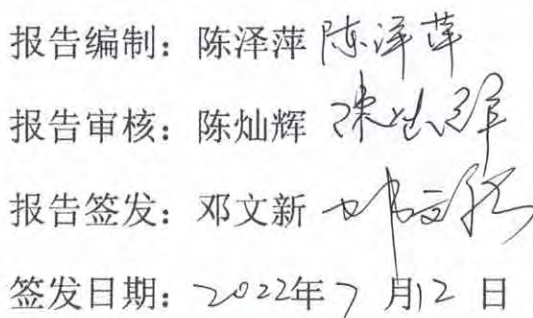 报告编制：陈泽萍 陈泽萍
报告审核：陈灿辉 陈灿辉
报告签发：邓文新 邓文新
签发日期：2022年7月12日